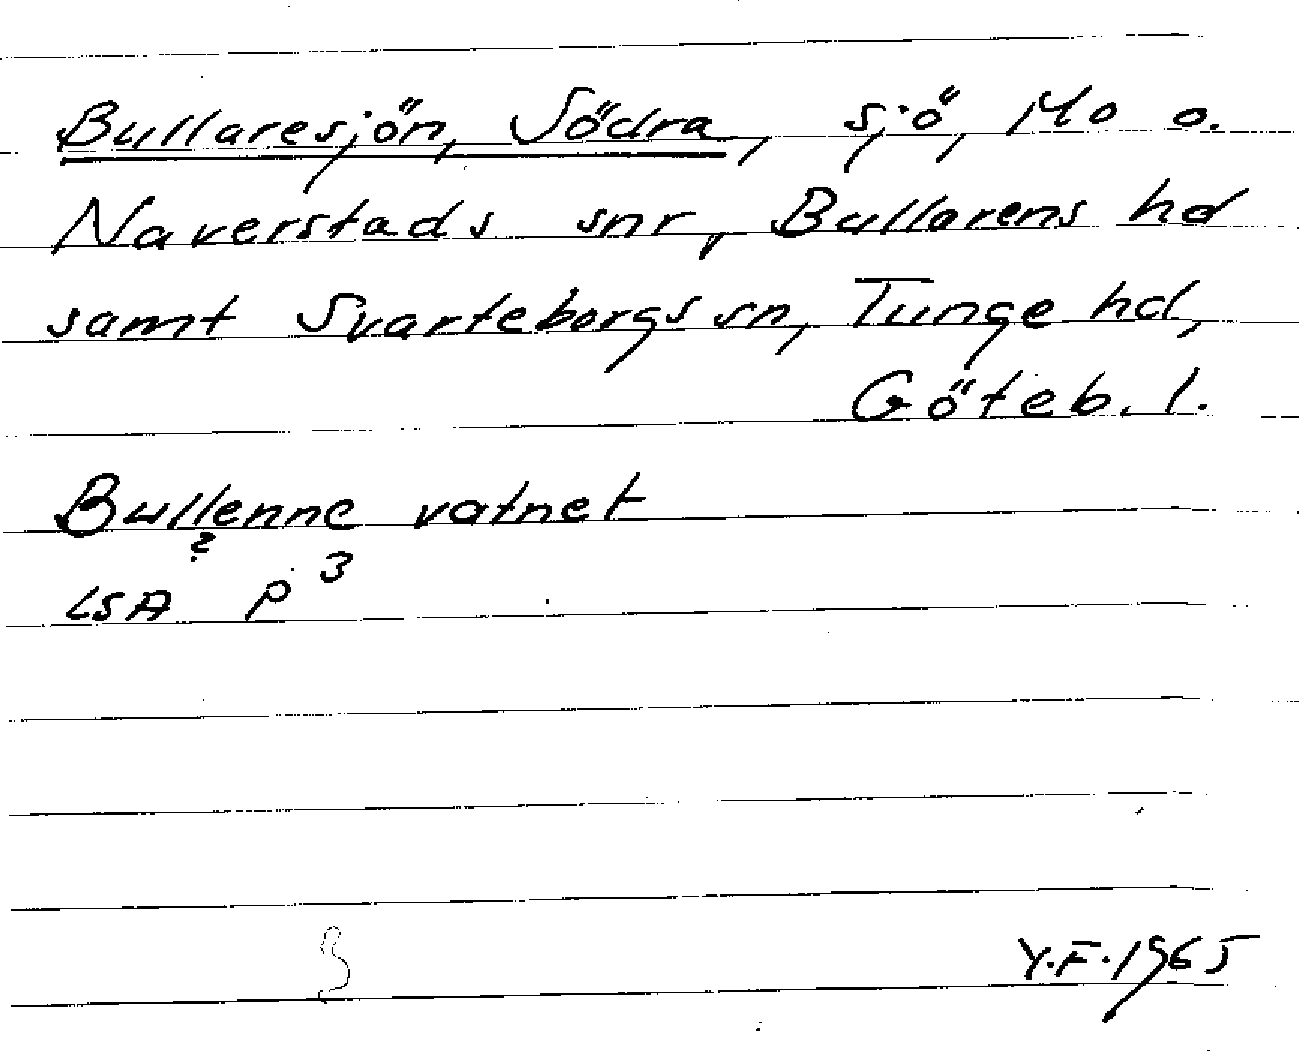 Bullaresjön, Södra, sjö, Mo o.
Naverstads snr, Bullarens hd
samt Svarteborgs sn, Tunge hd,
Göteb. l.
Bullenne vatnet
?
LSA P 3
Y.F. 1965